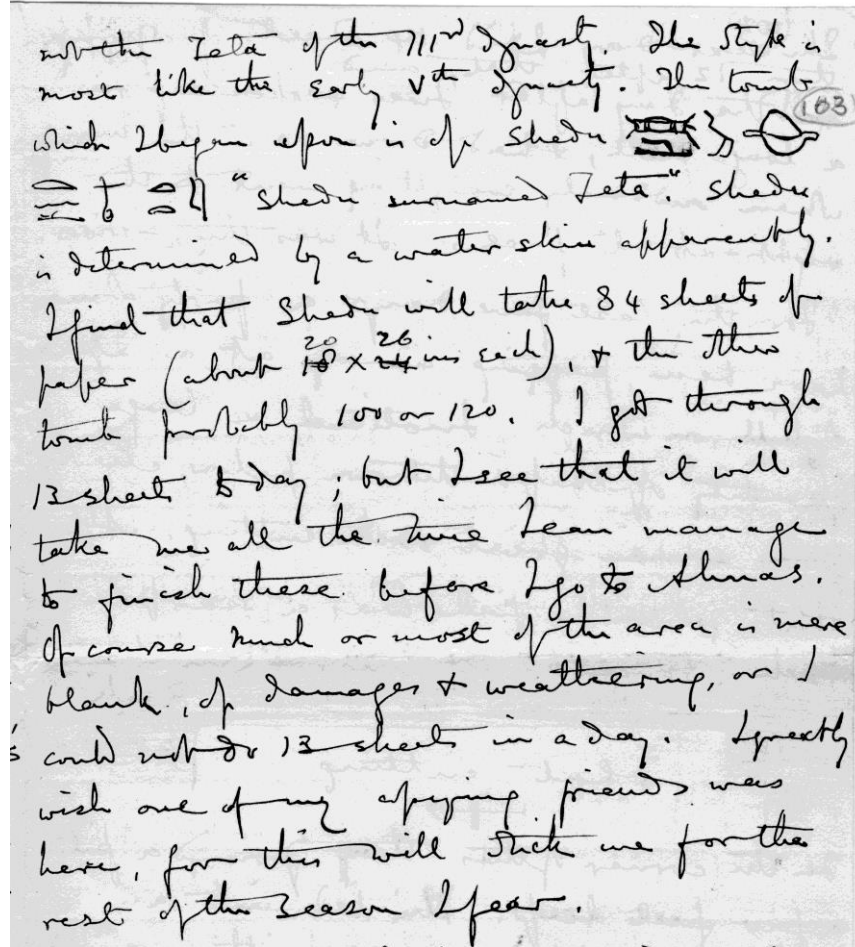 not the Teta of the IIIrd Dynasty. The style is
most like the early Vth dynasty. The tomb
103
which I began upon is of Shedu
"Shedu surnamed Teta". Shedu
is determined by a water skin apparently.
I find that Shedu will take 84 sheets of
20 26
paper (about 18 × 24 ins each), & the other
tomb probably 100 or 120. I got through
13 sheets to day; but I see that it will
take me all the time I can manage
to finish these before I go to Ahnas.
Of course much or most of the area is mere
blank, of damages & weathering, or I
could not do 13 sheets in a day. I greatly
wish one of my copying friends was
here, for this will stick me for the
rest of the season I fear.